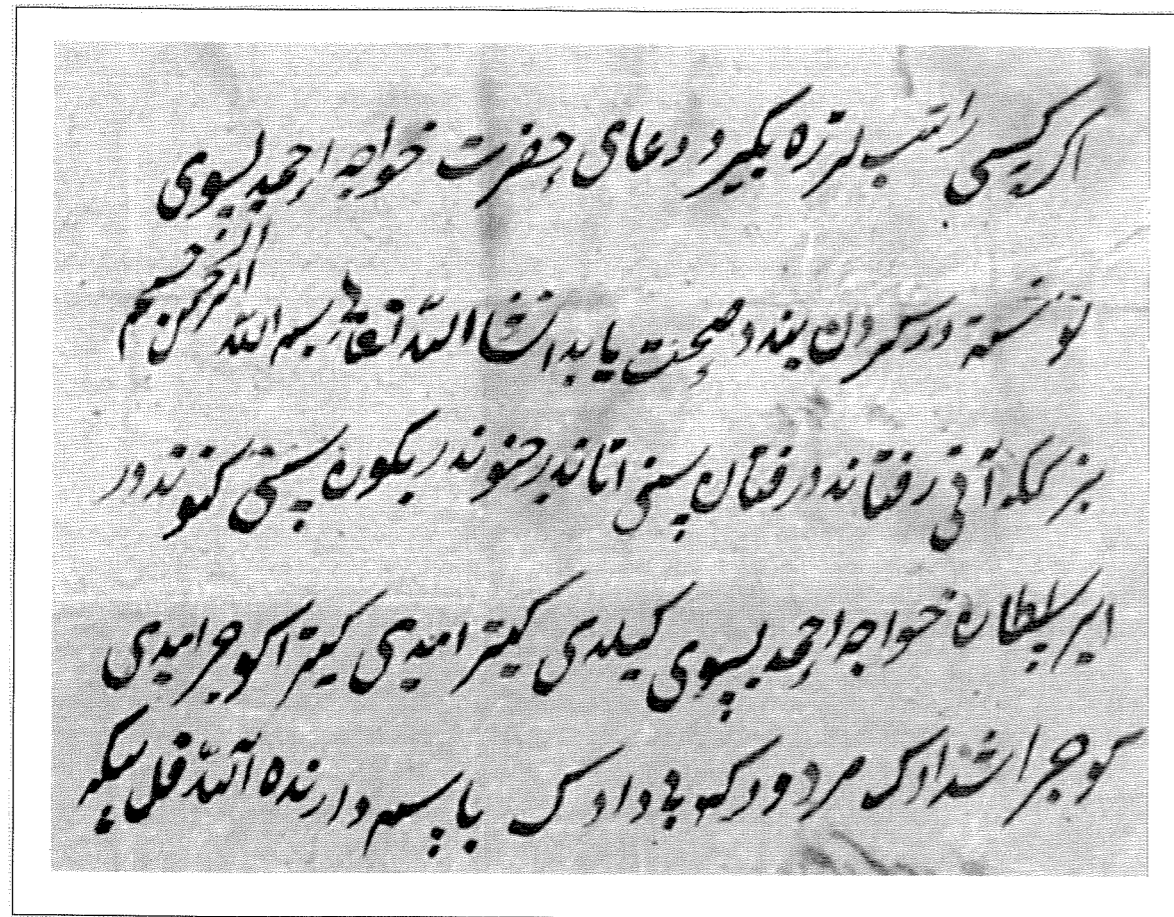 اکر کیسی را تب لرزه بکیرد دعای حضرت خواجه احمد یسوی
نوشته در کردن بندد صحت یابد انشا الله تعالی بسم الله الرحمن الرحیم
بزککه آتی رفتاند رفتان پسنی اتاندر خوندر بکوره پستی کتوندور
ایر سلطان خواجه احمد یسوی کیلدی کیترامیدی کیترا کوجرامیدی
کوجرا شداوک مردودکه داوک باسم دارنده الله قل